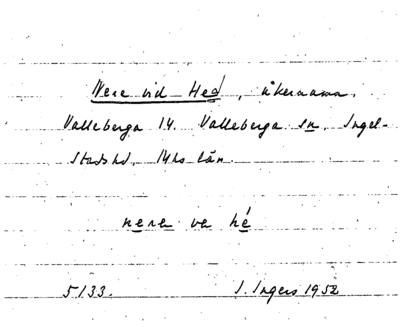 Nere vid Hed, åkernamn.
Valleberga 14. Valleberga sn, Ingel-
stads hd, Mhs län.
nera ve hé
5133. I. Ingers 1952